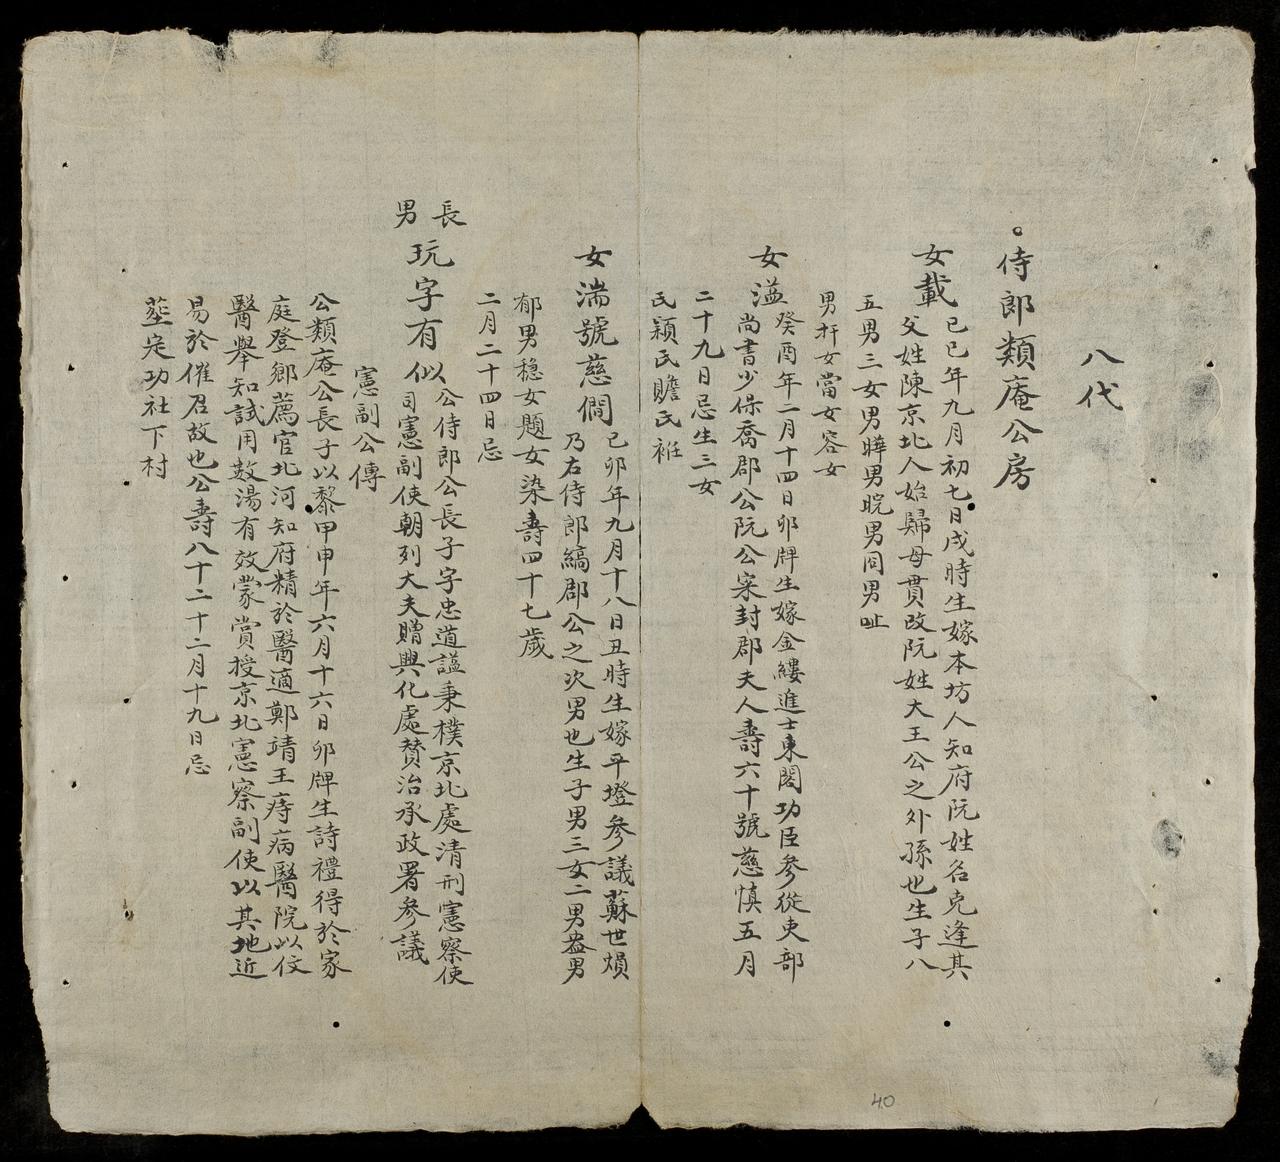 八代
侍郎類庵公房
女載
己巳年九月初七日戌時生嫁本坊人知府阮姓名克逢其
父姓陳京北人始歸母貫改阮姓大王公之外孫也生子八
五男三女男曄男晥男冏男㫮
男扞女當女容女
女溢
癸酉年二月十四日卯牌生嫁金縷進士東閣功臣參從吏部
尚書少保喬郡公阮公寀封郡夫人壽六十號慈慎五月
二十九日忌生三女
氏穎氏贍氏袵
女湍號慈僩
己卯年九月十八日丑時生嫁平墱參議蘇世熉
乃右侍郎縞郡公之次男也生子男三女二男盎男
郁男穏女題女染壽四十七歲
二月二十四日忌
長男
玩字有似
公侍郎公長子字忠道謚秉樸京北處清刑憲察使
司憲副使朝列大夫贈興化處贊治承政署參議
憲副公傳
公類庵公長子以黎甲申年六月十六日卯牌生詩禮得於家
庭登鄉薦官北河知府精於醫適鄭靖王痔病醫院以佼
醫舉知試用数湯有效蒙賞授京北憲察副使以其地近
易於催召故也公壽八十二十二月十九日忌
𦵏定功社下村
40